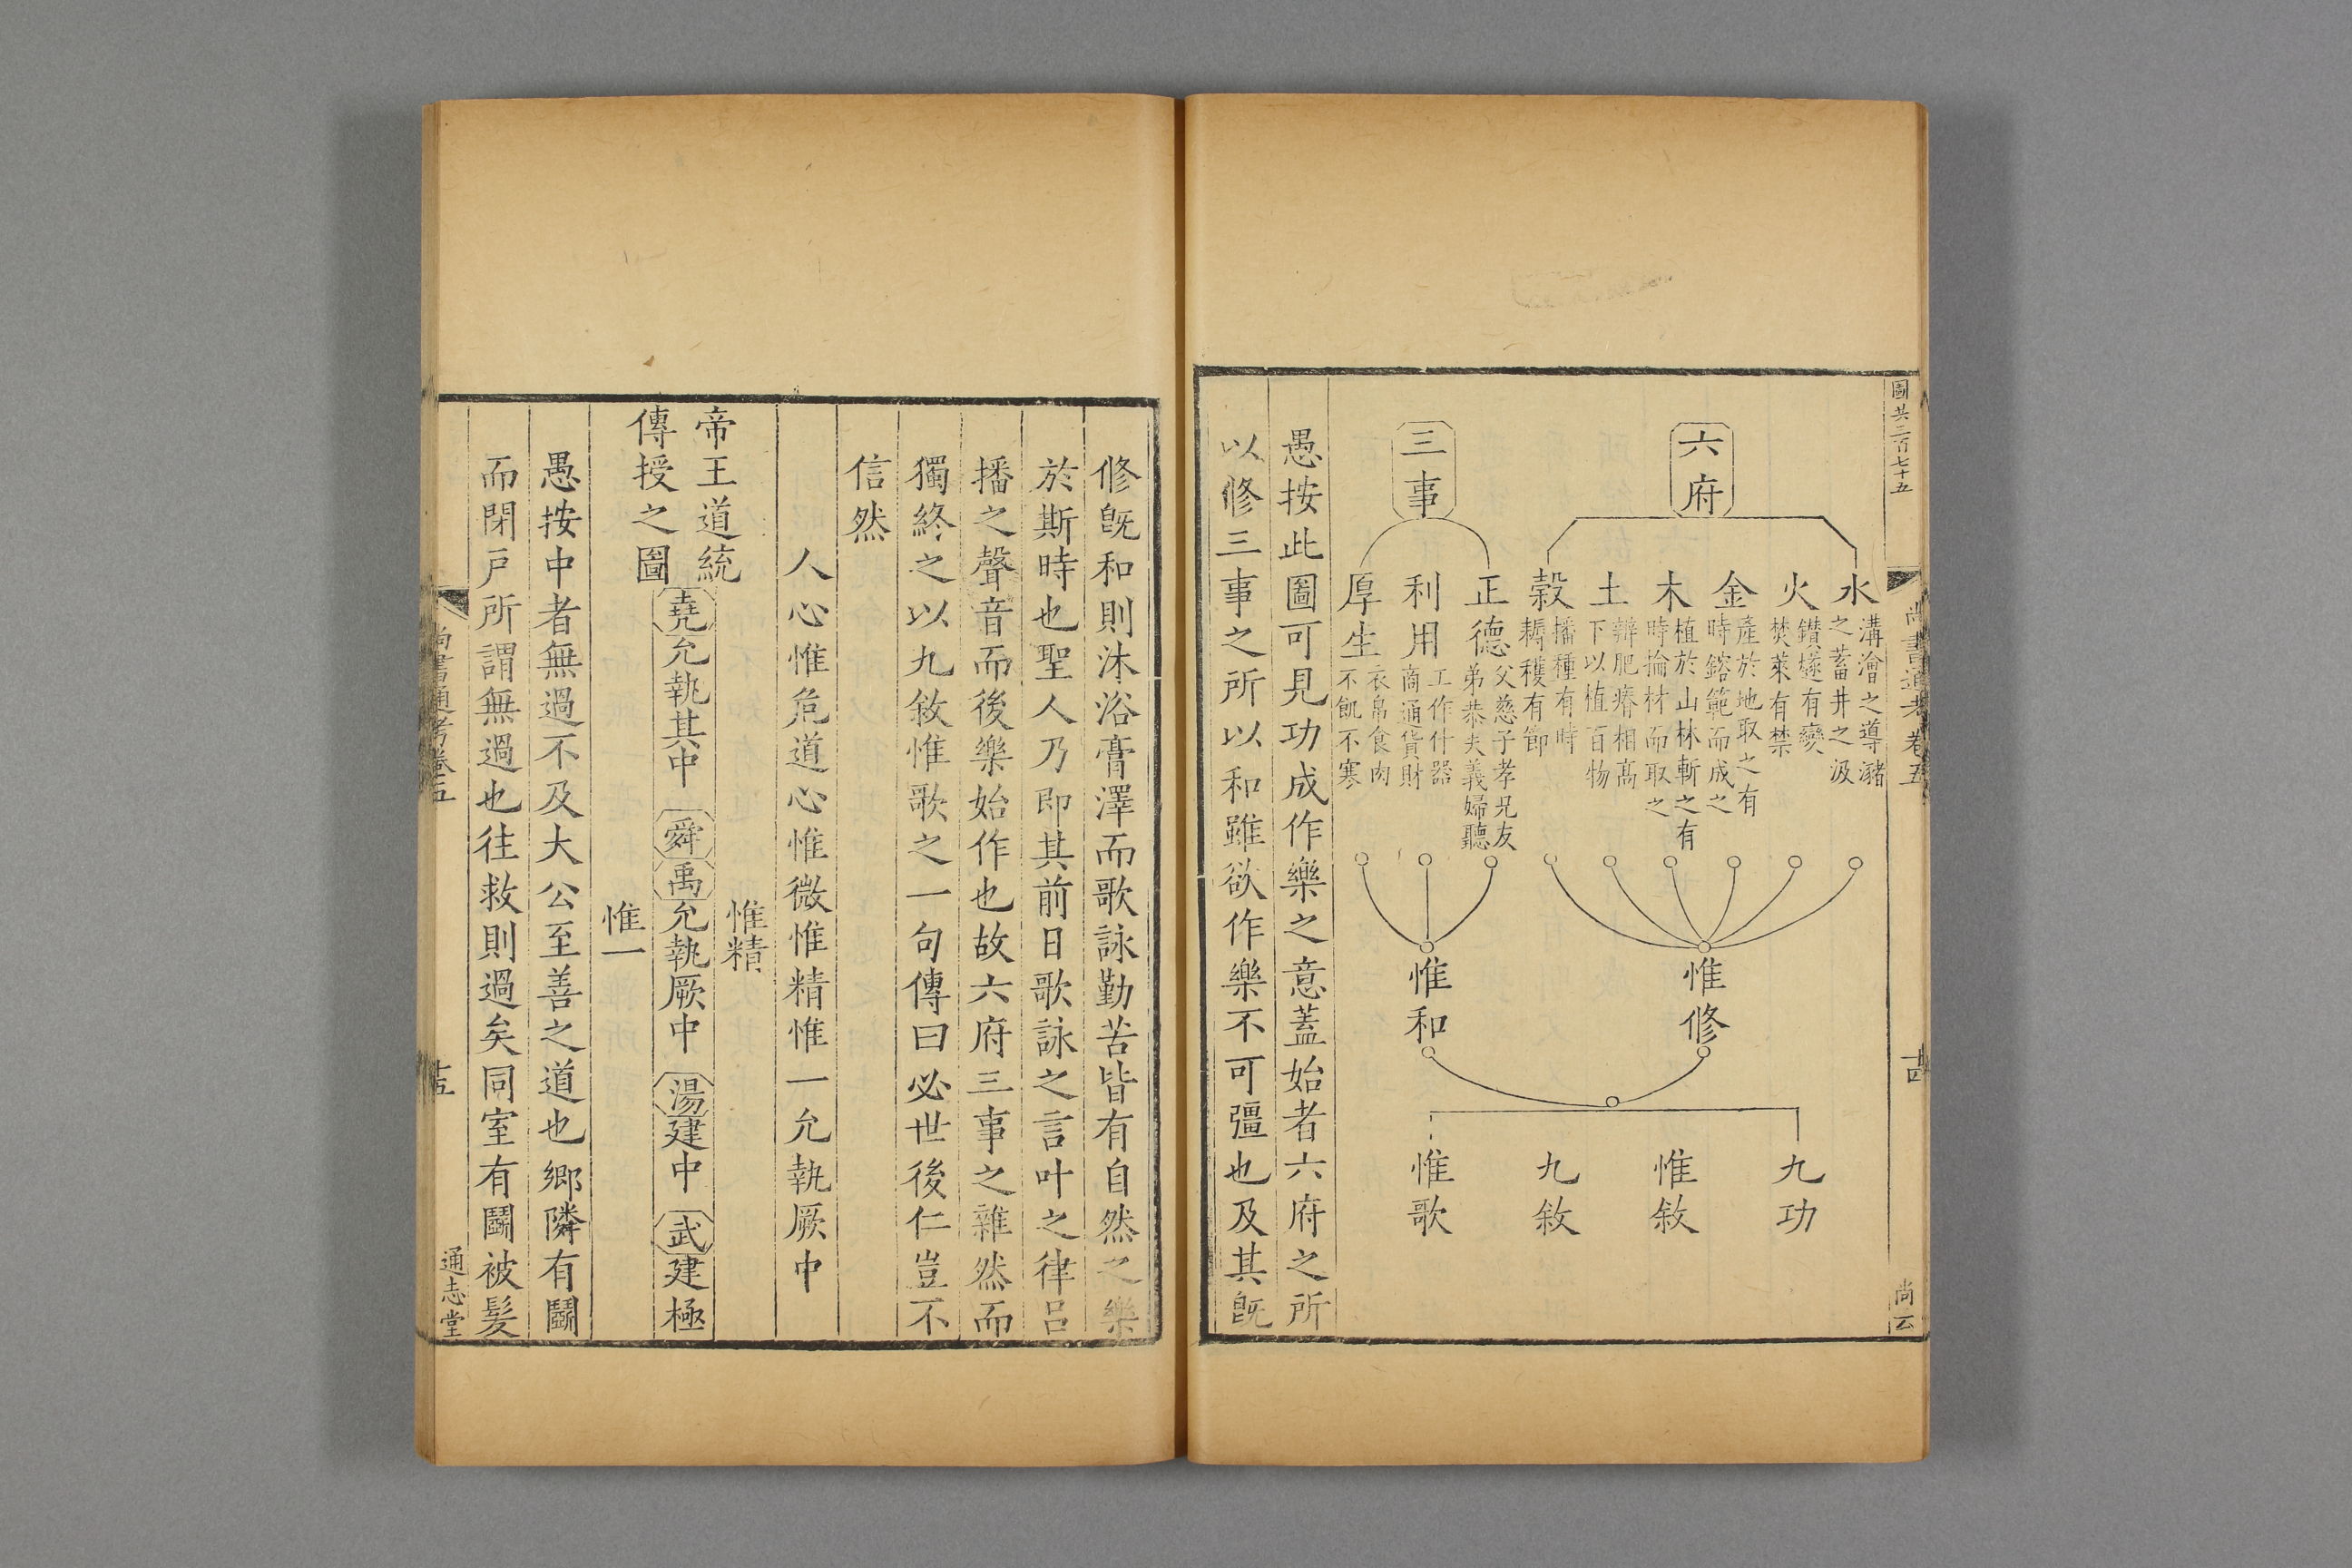 圖共二百七十五
尚書通考卷五
十四
尚云
六府
水
溝澮之導瀦
之蓄井之汲
火
鑽燧有變
焚萊有禁
金
產於地取之有
時鎔範而成之
木
植於山林斬之有
時掄材而取之
土
辨肥瘠相高
下以植百物
榖
播種有時
耨穫有節
三事
正德
父慈子孝兄友
弟恭夫義婦聽
利用
工作什器
商通貨財
厚生
衣帛食肉
不飢不寒
惟修
惟和
九功
惟敘
九敘
惟歌
愚按此圖可見功成作樂之意蓋始者六府之所
以修三事之所以和雖欲作樂不可彊也及其既
修旣和則沐浴膏澤而歌詠勤苦皆有自然之樂
於斯時也聖人乃即其前日歌詠之言叶之律呂
播之聲音而後樂始作也故六府三事之雜然而
獨終之以九敘惟歌之一句傳曰必世後仁豈不
信然
人心惟危道心惟微惟精惟一允執厥中
帝王道統
傳授之圖
惟精
堯允執其中 舜禹允執厥中 湯建中 武建極
惟一
愚按中者無過不及大公至善之道也鄉隣有鬭
而閉戸所謂無過也往救則過矣同室有鬭被髮
尚書通考卷五
十五
通志堂